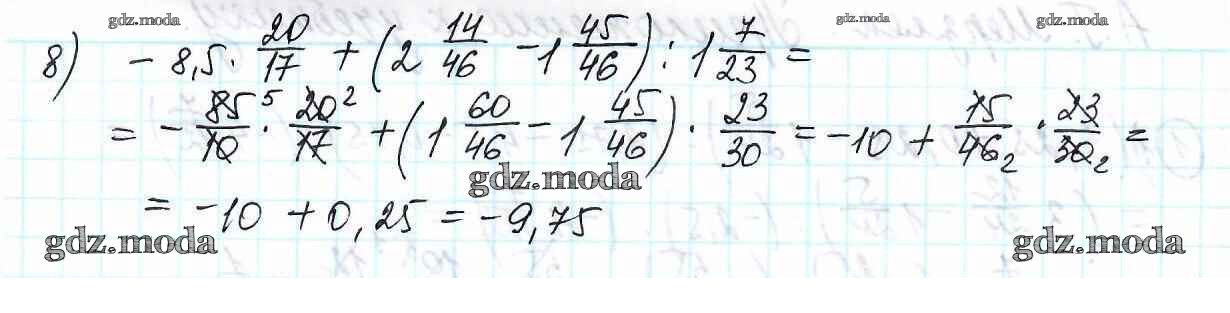 gdz.moda gdz.moda gdz.moda
8) - 8,5 · 20/17 + (2 14/46 - 1 45/46) : 1 7/23 =
= - 85⁵/10 · 20²/17 + (1 60/46 - 1 45/46) · 23/30 = -10 + 15/46₂ · 23/30₂ =
gdz.moda
= -10 + 0,25 = -9,75
gdz.moda gdz.moda